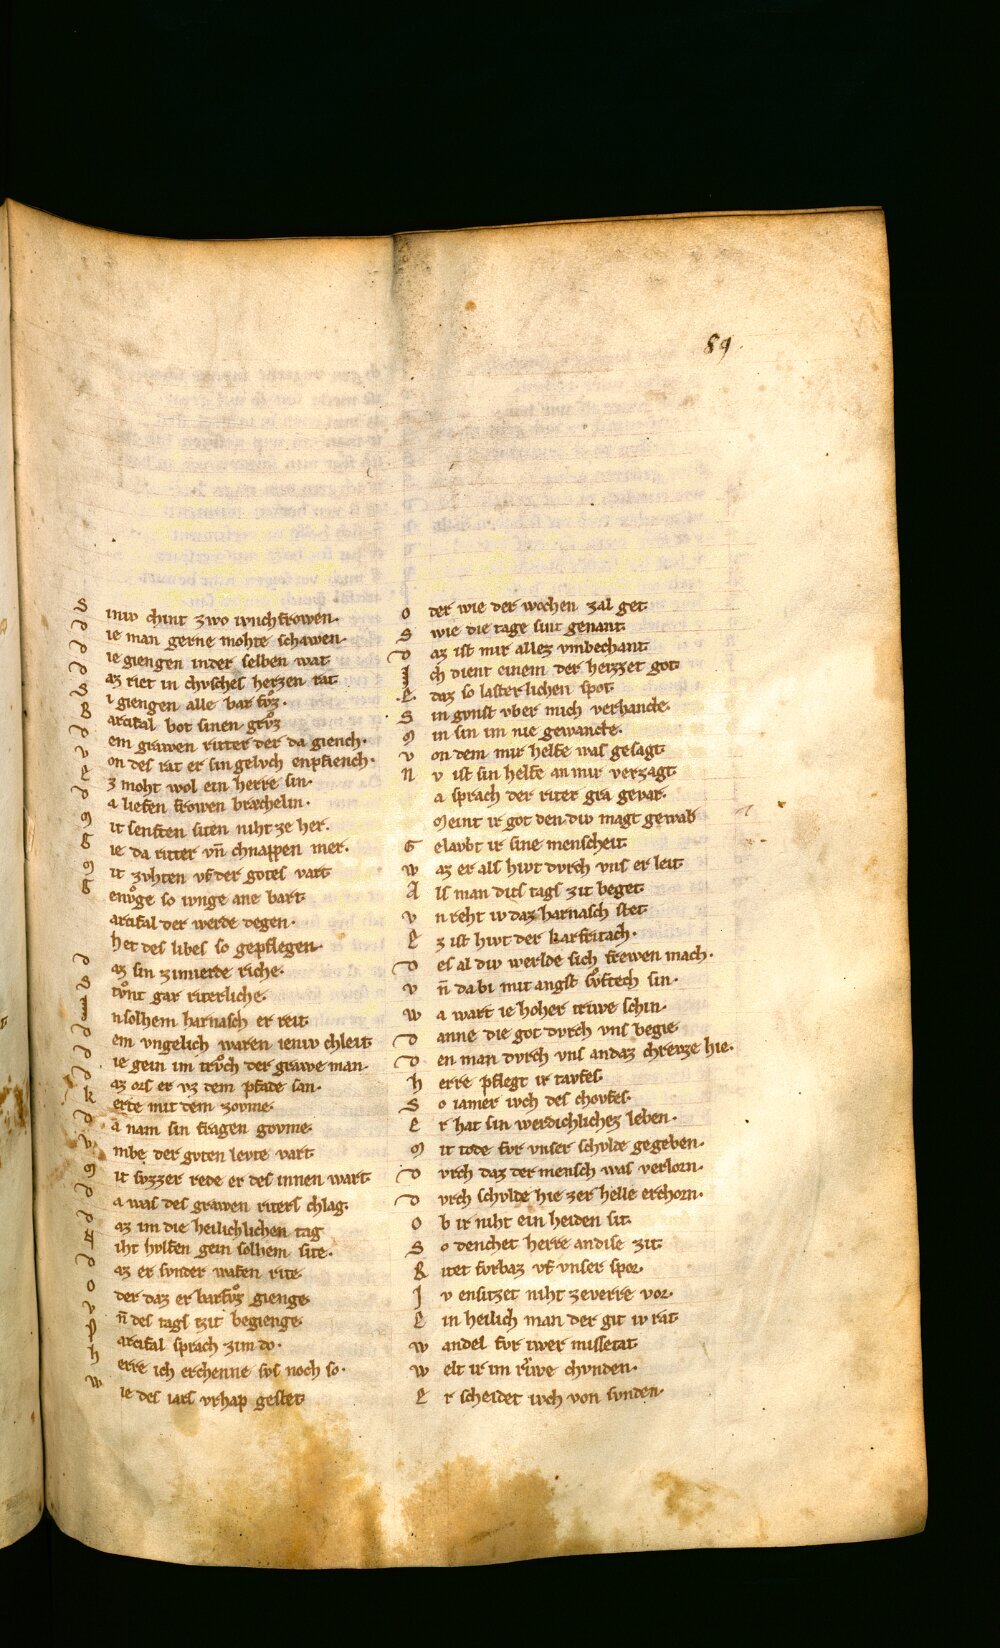 89
S iniw chint zwo ivnchfrowen.
D ie man gerne mohte schawen.
D ie giengen inder selben wat
D az riet in chvsches herzen rat
S i giengen alle bar fvͦz.
P arcifal bot sinen grvͦz
D em grawen ritter der da giench.
V on des rat er sin gelvch enpfiench.
E z moht wol ein herre sin.
D a liefen frowen bræchelin.
M it senften siten niht ze her.
G ie da ritter vn̄ chnappen mer.
M it zvhten vf der gotes vart
G envͦge so ivnge ane bart
arcifal der werde degen.
het des libes so gepflegen.
D az sin zimierde riche.
S tvͦnt gar riterliche.
I n solhem harnasch er reit
D em vngelich waren ieniw chleit
D ie gein im trvͦch der grawe man.
D az ors er vz dem pfade san.
K erte mit dem zovme.
D a nam sin fragen govme.
V mbe der gvten levte vart
M it svzzer rede er des innen wart
D a was des grawen riters chlag.
D az im die heilichlichen tag
N iht hvlfen gein solhem site.
D az er svnder wafen rite.
O der daz er barfvͦz gienge
V n̄ des tags tzit begienge.
P arcifal sprach zim do.
H erre ich erchenne svs noch so.
W ie des iars vrhap gestet
O der wie der wochen zal get
S wie die tage sint genant
D az ist mir allez vmbechant
I ch dient einem der heizzet got
E daz so lasterlichen spot
S in gvnst vber mich verhancte.
M in sin im nie gewancte.
V on dem mir helfe was gesagt
N v ist sin helfe an mir verzagt
a sprach der riter gra gevar.
Meint ir got den diw magt gewab
G elavbt ir sine menscheit
W az er als hiwt dvrch vns er leit
A ls man dits tags zit beget
V n reht iv daz harnasch stet
E z ist hiwt der karfritach.
D es al diw werlde sich frewen mach.
V n̄ da bi mit angst svͦftech sin.
W a wart ie hoher triwe schin.
D anne die got dvrch vns begie
D en man dvrch vns an daz chrewze hie.
H erre pflegt ir tavfes.
S o iamer ivch des chovfes.
E r hat sin werdichlichez leben.
M it tode fvr vnser schvlde gegeben.
D vrch daz der mensch was verlorn.
D vrch schvlde hie zer helle erchorn.
O b ir niht ein heiden sit.
S o denchet herre an dise zit.
R itet fvrbaz vf vnser spor.
I v ensitzet niht ze verre vor.
E in heilich man der git iv rat
W andel fvr iwer missetat
W elt ir im rͥwe chvnden.
E r scheidet ivch von svnden.